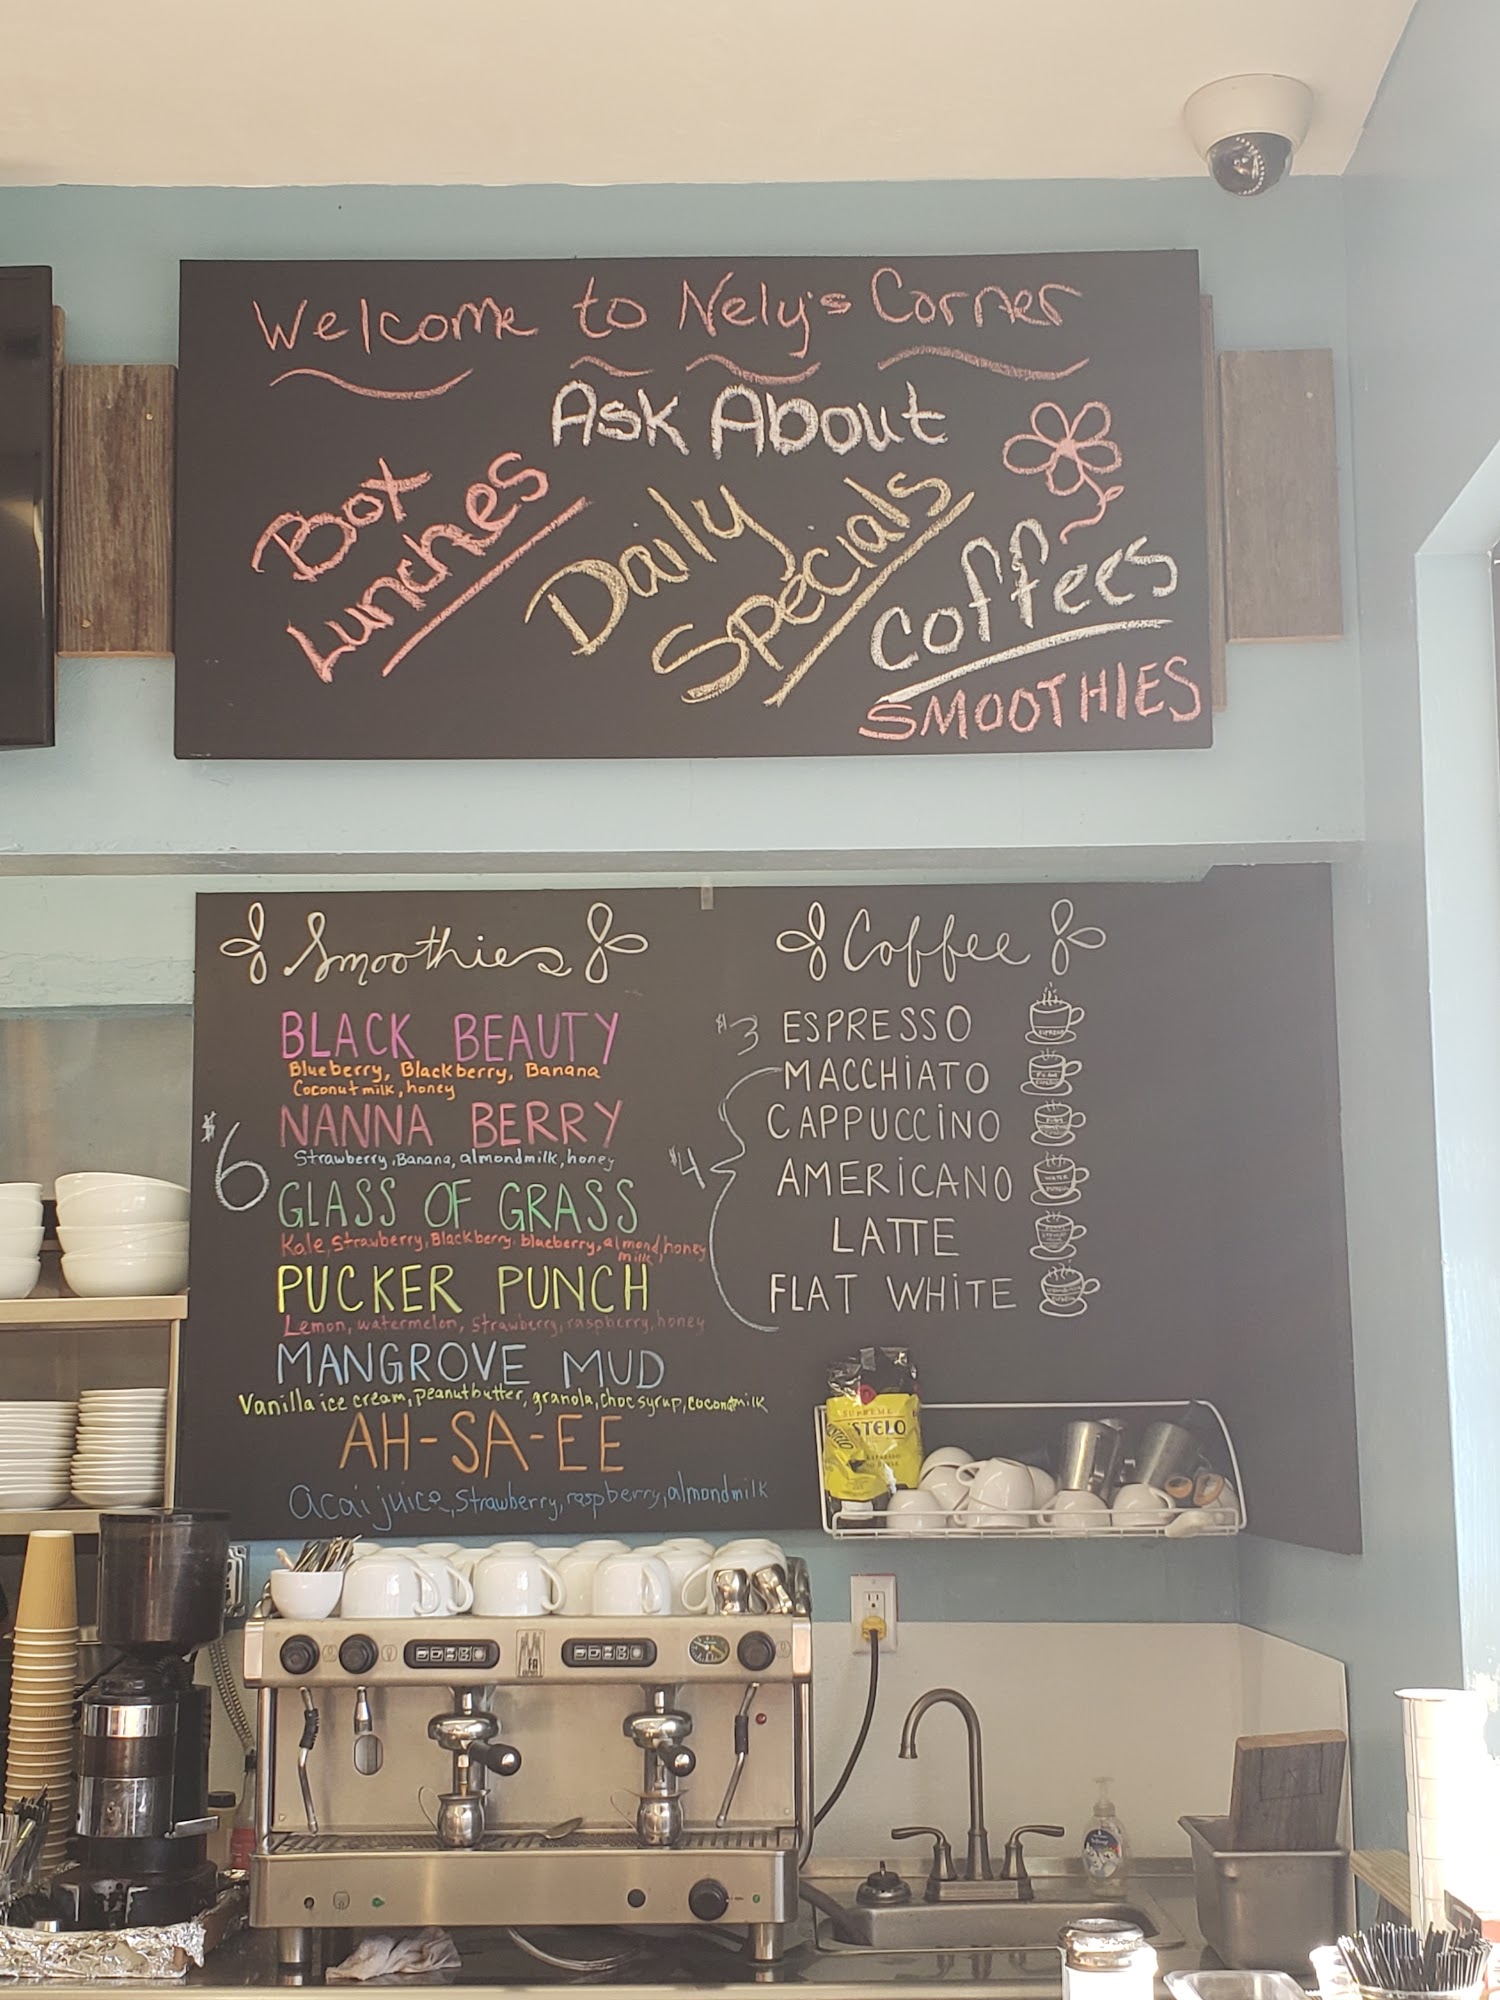 Welcome to Nely's Corner
Ask About
Box
Lunches
Daily
Specials
Coffees
SMOOTHIES
Smoothies
$6
BLACK BEAUTY
Blueberry, Blackberry, Banana
Coconutmilk, honey
NANNA BERRY
Strawberry, Banana, almondmilk, honey
GLASS OF GRASS
Kale, Strawberry, Blackberry, blueberry, almond, honey
milk
PUCKER PUNCH
Lemon, watermelon, Strawberry, raspberry, honey
MANGROVE MUD
Vanilla ice cream, peanutbutter, granola, choc syrup, coconutmilk
AH-SA-EE
acai juice, Strawberry, raspberry, almondmilk
Coffee
$3 ESPRESSO
$4
MACCHIATO
CAPPUCCINO
AMERICANO
LATTE
FLAT WHITE
SUPREME